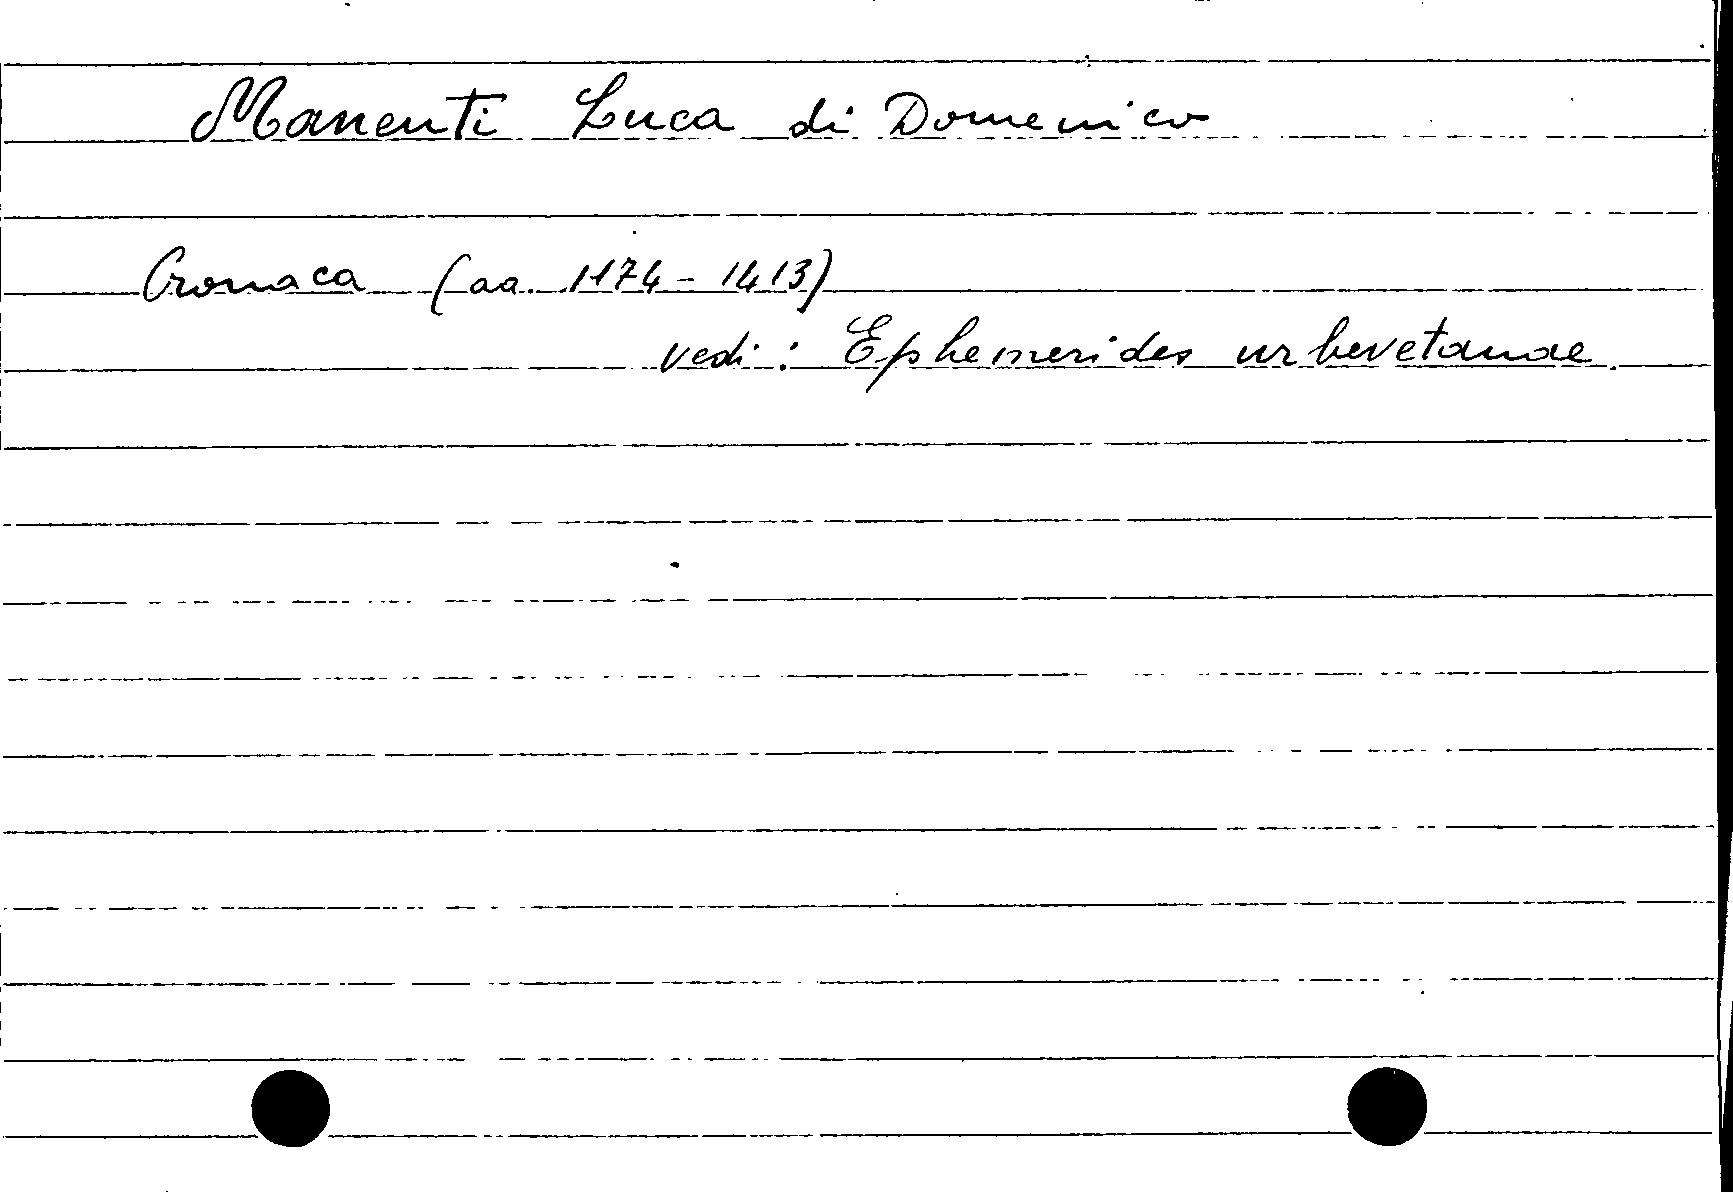 Manenti Luca di Domenico
Cronaca (aa. 1174-1413)
vedi: Ephemerides urbevetanae.